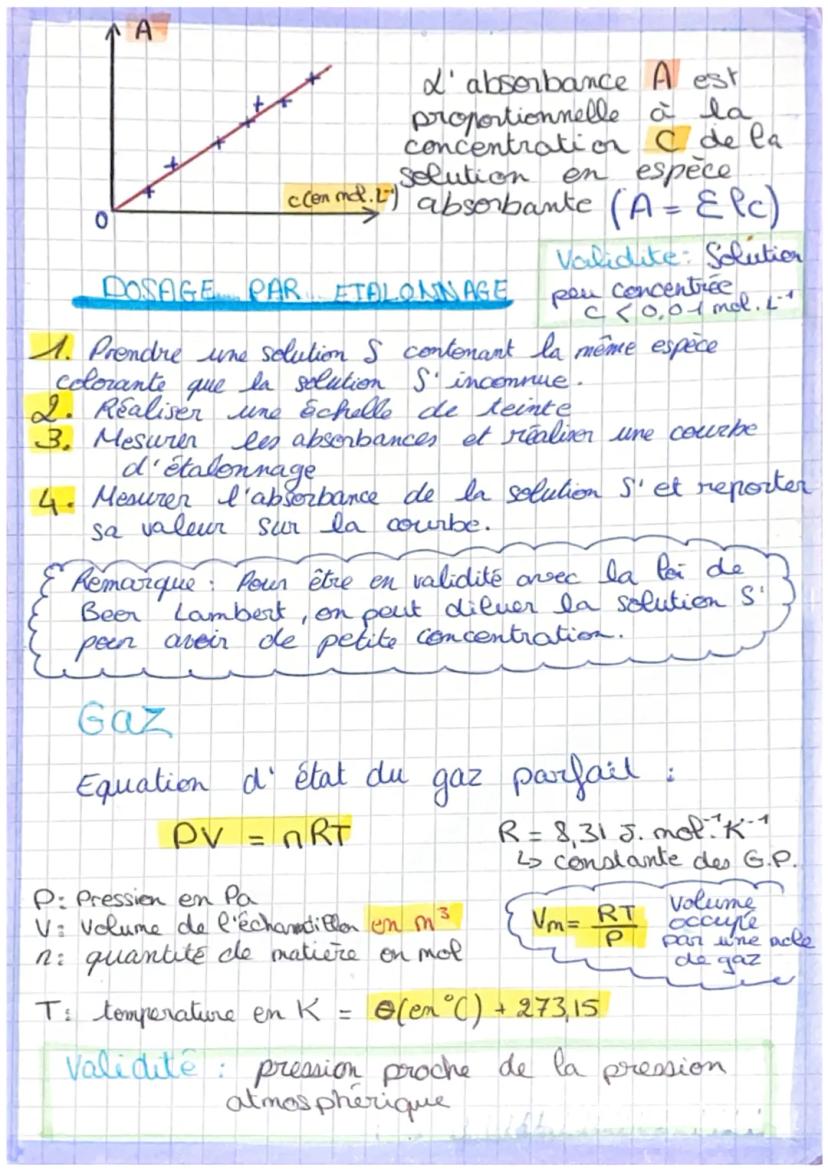 A
c (en mol.L⁻¹)
O
L'absorbance A est
proportionnelle à la
concentration C de la
solution en espèce
absorbante (A = Ɛlc)
Validité: Solution
peu concentrée
C < 0,01 mol.L⁻¹
DOSAGE PAR ETALONNAGE
1. Prendre une solution S contenant la même espèce
colorante que la solution S' inconnue.
2. Réaliser une échelle de teinte
3. Mesurer les absorbances et réaliser une courbe
d'étalonnage
4. Mesurer l'absorbance de la solution S' et reporter
sa valeur sur la courbe.
Remarque : Pour être en validité avec la loi de
Beer Lambert, on peut diluer la solution S'
pour avoir de petite concentration.
Gaz
Equation d'état du gaz parfait :
PV = nRT
R = 8,31 J.mol⁻¹K⁻¹
↳ constante des G.P.
P: Pression en Pa
V: Volume de l'échantillon en m³
n: quantité de matière en mol
Vm = RT/P
Volume
occupé
par une mole
de gaz
T: temperature en K = θ(en °C) + 273,15
Validité : pression proche de la pression
atmosphérique